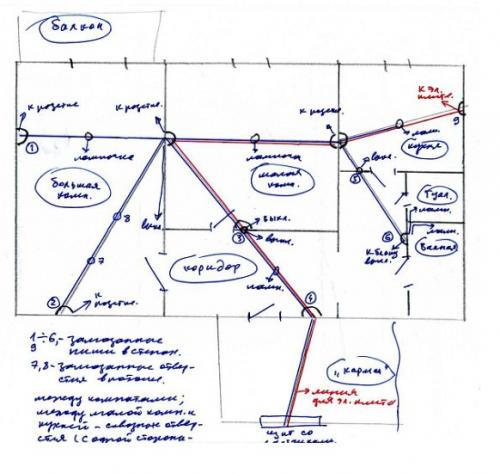 Балкон
к розетке
к розетке
к розетке
к эл. плите.
1
лампочка
лампочка
9
лам.
кухня
Большая комн.
малая комн.
выкл.
5
Туал.
лам.
8
выкл.
3
выкл.
6
лам.
Ванная
к блоку выкл.
коридор
7
ламп.
2
к розетке.
4
1÷6,- замазанные
9 ниши в стенах.
7,8- замазанные отвер-
стия в потолке.
между комнатами;
между малой комн. и
кухней - сквозные отвер-
стия (с одной сторона-
„карман"
линия
для эл. плиты
щит со